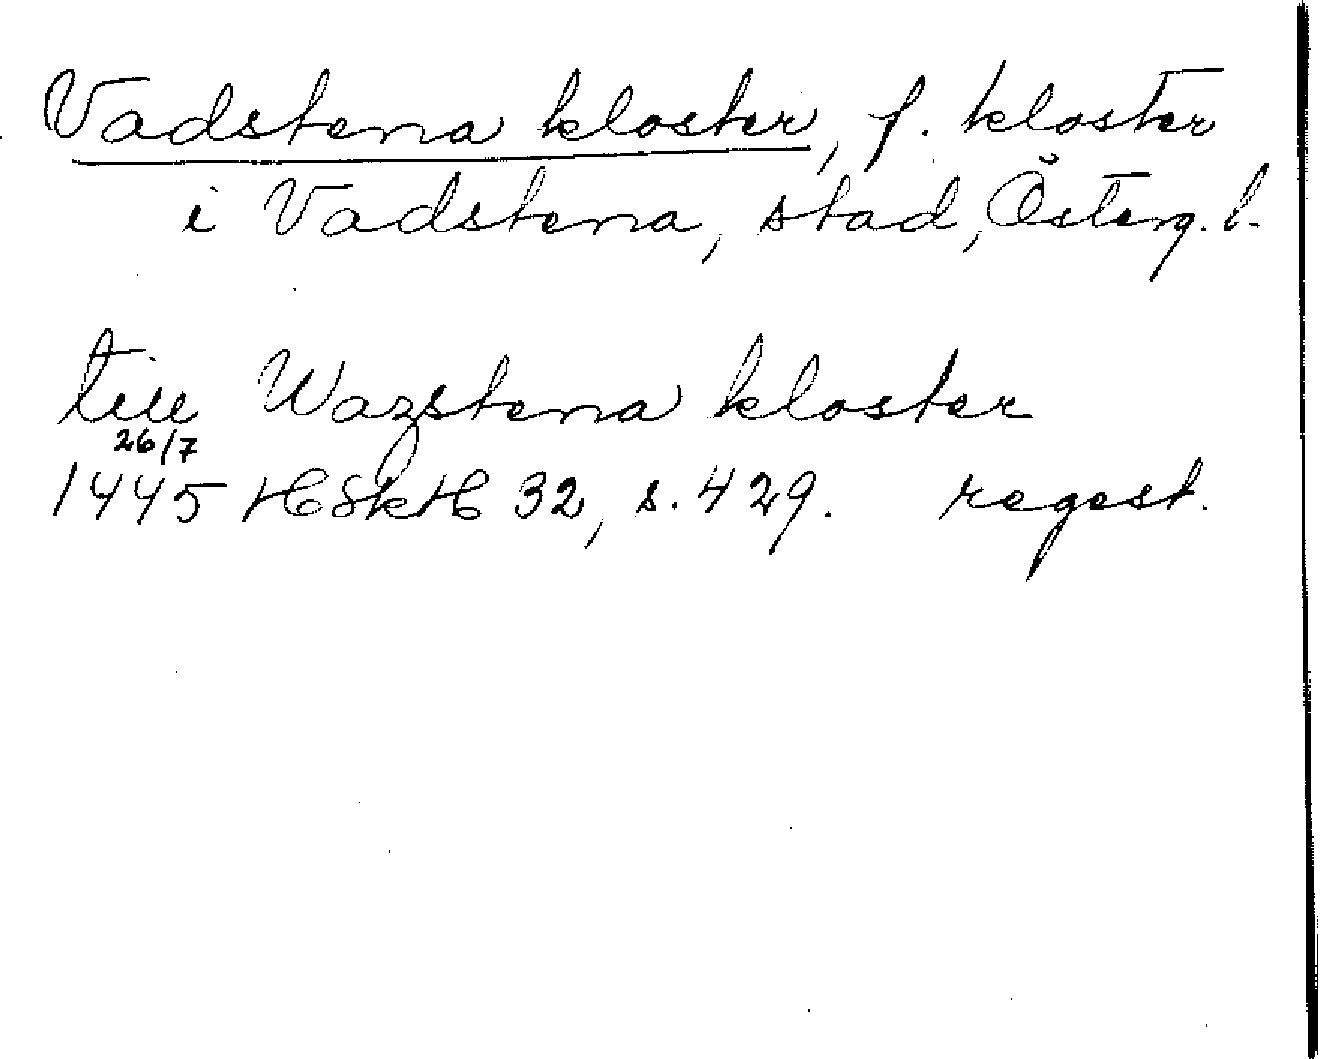 Vadstena kloster, f. kloster
i Vadstena, stad, Österg. l.
till Wazstena kloster
26/7
1445 HSkH 32, s. 429. regest.